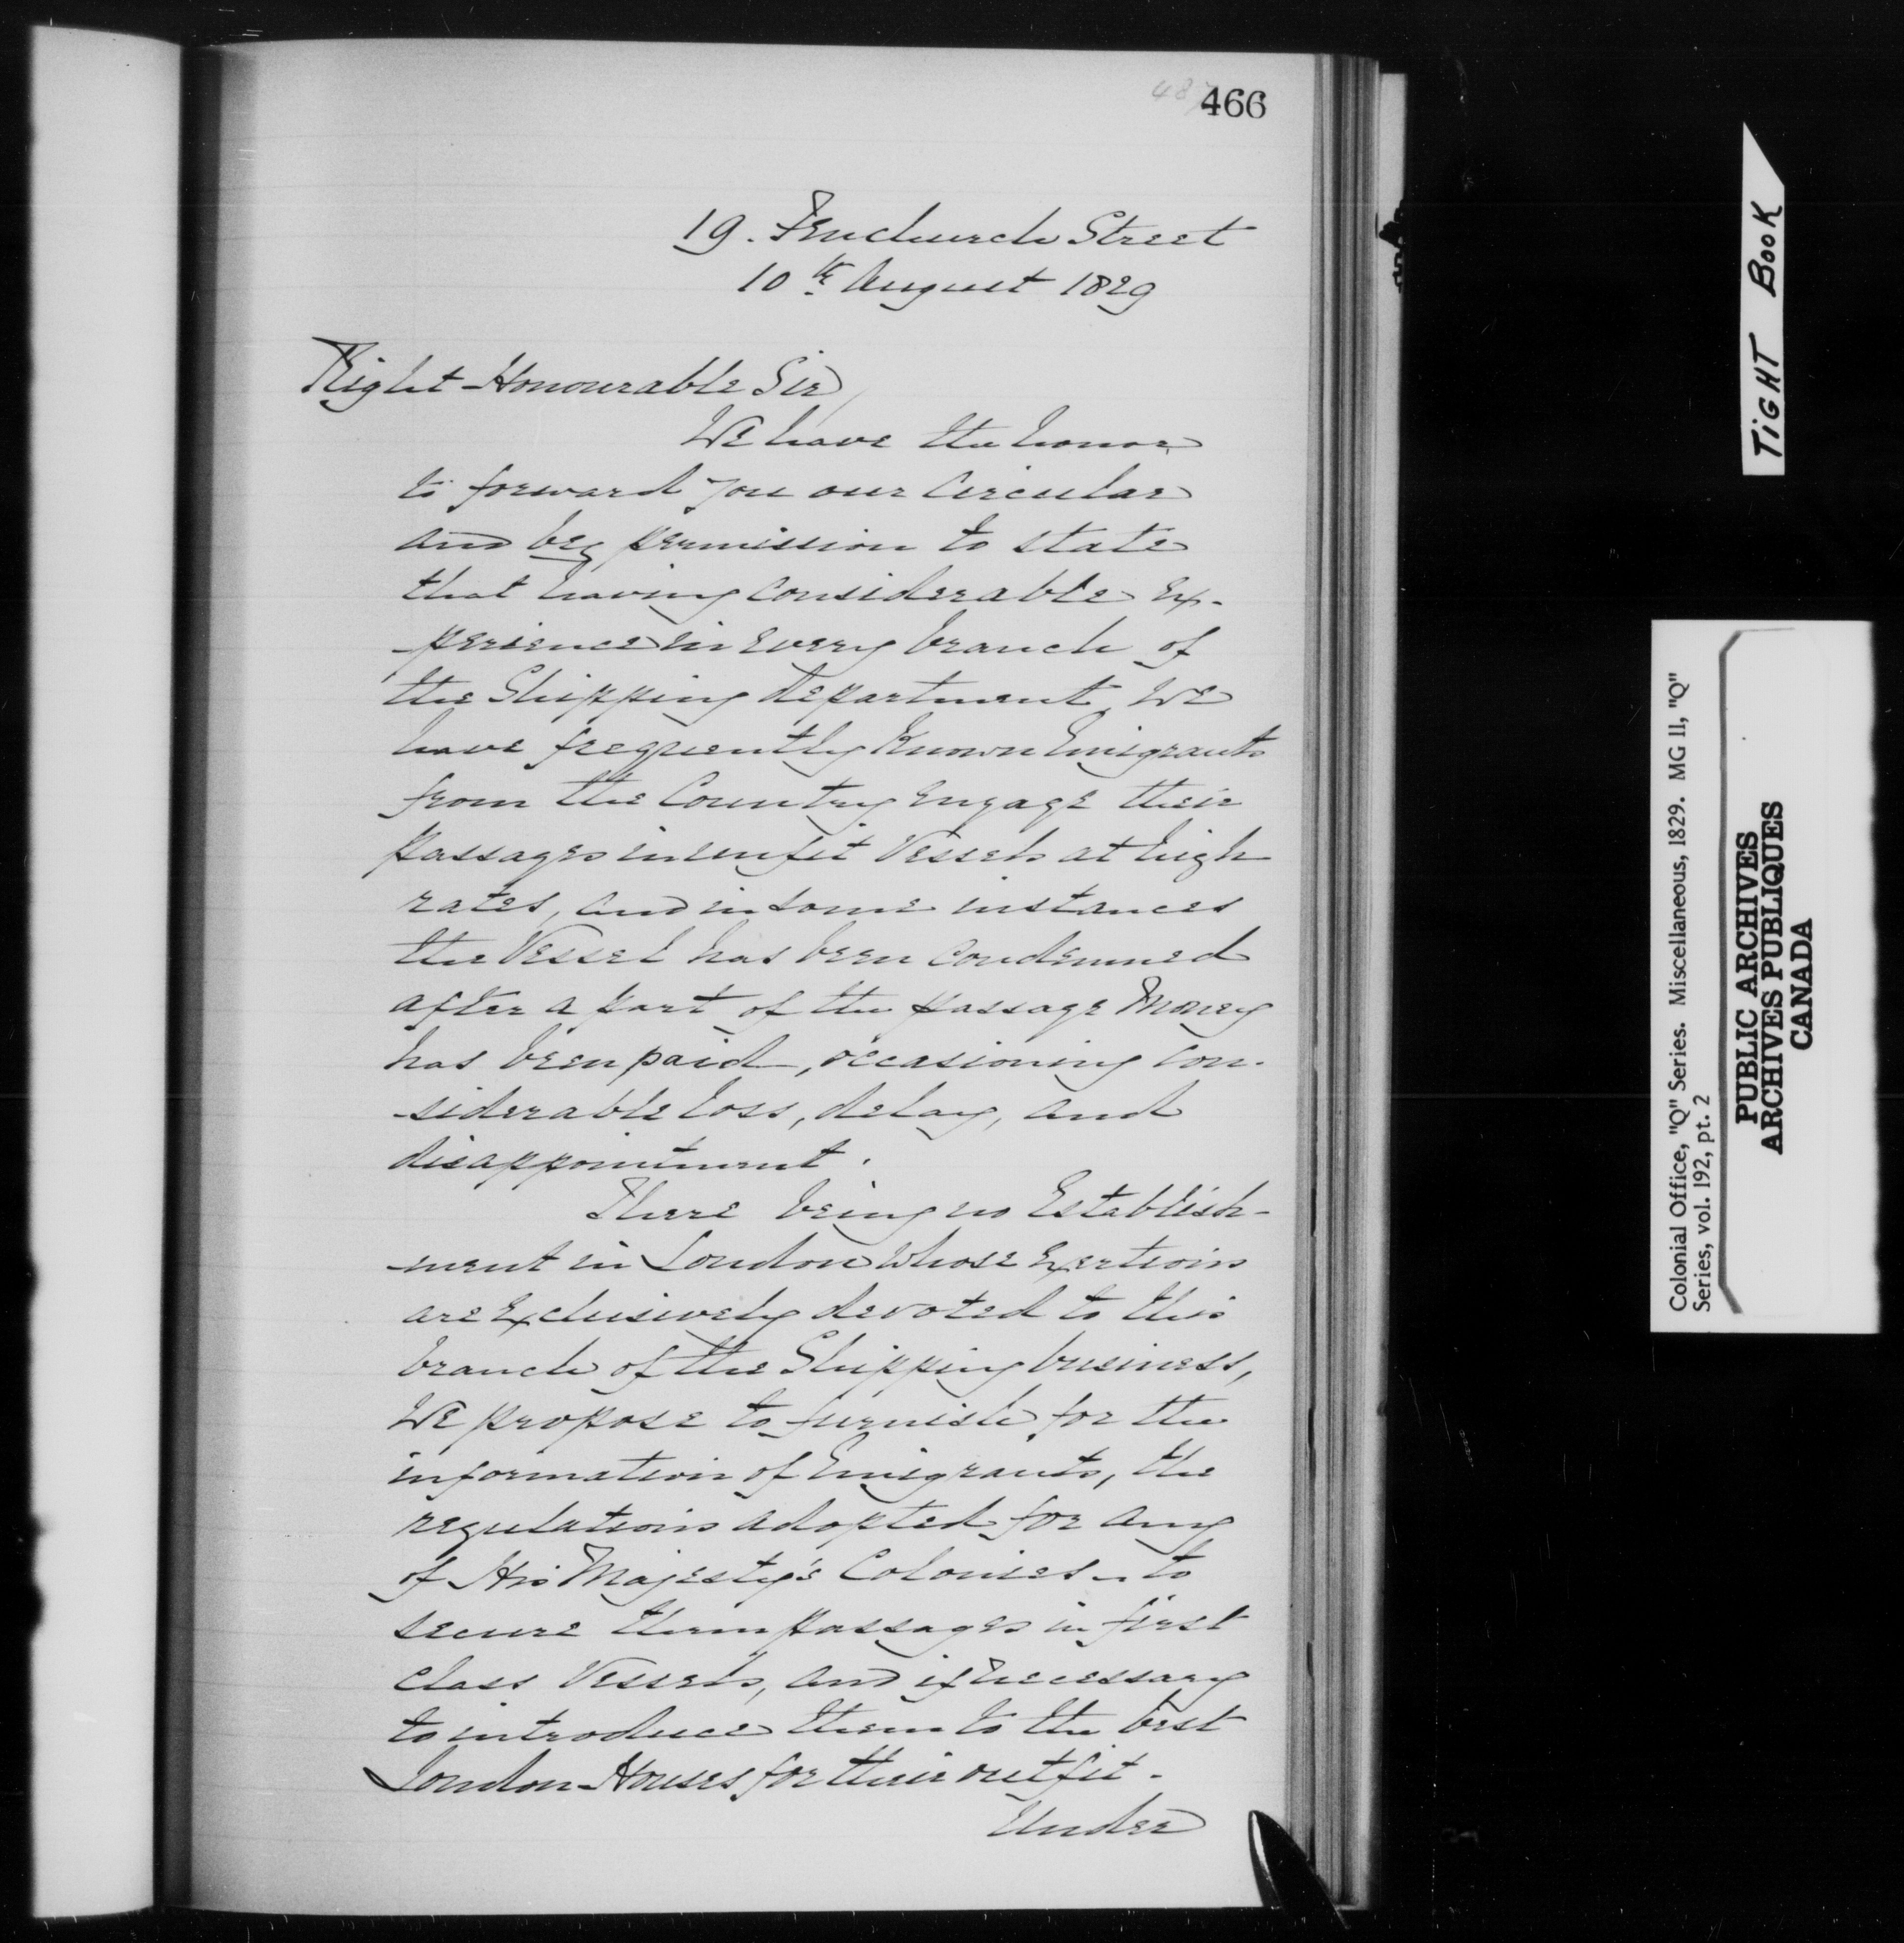 466
19. Fenchurch Street
10th August 1829
Right Honourable Sir,
We have the honor
to forward you our Circular
and beg permission to state
that having considerable ex-
-perience in every branch of
the Shipping department, We
have frequently Known Emigrants
from the Country engage their
passages in unfit Vessels at high
rates, and in some instances
the Vessel has been condemned
after a part of the passage Money
has been paid, occasioning con-
-siderable loss, delay, and
disappointment.
There being no Establish-
-ment in London whose exertions
are exclusively devoted to this
branch of the Shipping business,
We propose to furnish for the
information of Emigrants, the
regulations adopted for any
of His Majesty's Colonies – to
secure them passages in first
class Vessels, and if necessary
to introduce them to the best
London Houses for their outfit.
Under
TIGHT BOOK
Colonial Office, "Q" Series. Miscellaneous, 1829. MG 11, "Q"
Series, vol. 192, pt. 2
PUBLIC ARCHIVES
ARCHIVES PUBLIQUES
CANADA